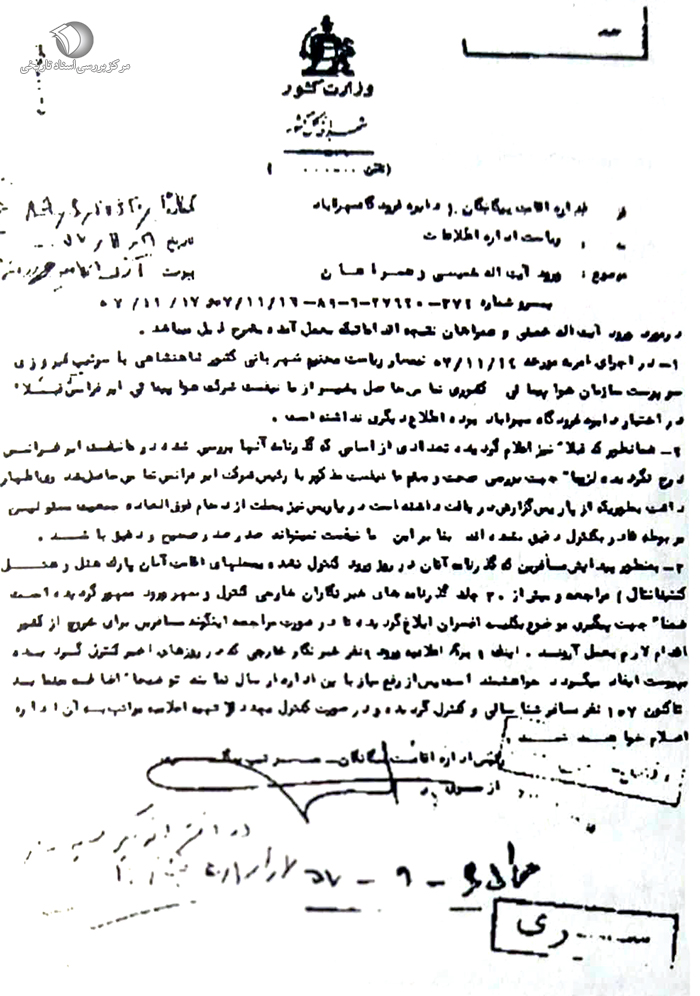 مرکز بررسی اسناد تاریخی
وزارت کشور
شهربانی کشور
(تلفن ۰۰۰۰۰۰ )
از اداره اقامت بیگانگان و دایره فرودگاه مهرآباد
به : ریاست اداره اطلاعات
تاریخ
موضوع : ورود آیت اله خمینی و همراهان
پیوست
پیرو شماره ۲۷۲-۲۷۶۲۰-۶-۸۹-۵۷/۱۱/۱۶ و ۵۷/۱۱/۱۷
در مورد ورود آیت اله خمینی و همراهان نتیجه اقداماتیکه بعمل آمده بشرح ذیل میباشد .
۱- در اجرای امریه مورخه ۵۷/۱۱/۱۴ تیمسار ریاست معظم شهربانی کشور شاهنشاهی با سرتیپ فیروزی
سرپرست سازمان هواپیمائی کشوری تماس حاصل بغیر از مانیفست شرکت هواپیمائی ایرفرانس که قبلا"
در اختیار دایره فرودگاه مهرآباد بوده اطلاع دیگری نداشته است .
۲- همانطور که قبلا" نیز اعلام گردیده تعدادی از اسامی که گذرنامه آنها بررسی شده در مانیفست ایرفرانس
درج نگردیده لزوما" جهت بررسی صحت و سقم مانیفست مذکور با رئیس شرکت ایرفرانس تماس حاصل شد وی اظهار
داشت بطوریکه از پاریس گزارش دریافت داشته است در پاریس نیز بعلت ازدحام فوق العاده جمعیت مسئولین
مربوطه قادر بکنترل دقیق نشده اند بنابراین مانیفست نمیتواند صددرصد صحیح و دقیق باشد .
۳- بمنظور پیدایش مسافرین که گذرنامه آنان در روز ورود کنترل نشده بمحلهای اقامت آنان پارک هتل و هتل
کنتیننتال ) مراجعه و بیش از ۲۰ جلد گذرنامه های خبرنگاران خارجی کنترل و بمهر ورود ممهور گردیده است
ضمنا" جهت پیگیری موضوع بکلیه افسران ابلاغ گردیده تا در صورت مراجعه اینگونه مسافرین برای خروج از کشور
اقدام لازم بعمل آورند . اینک برگ اعلامیه ورود نفر خبرنگار خارجی که در روزهای اخیر کنترل گردیده
بپیوست ایفاد میگردد خواهشمند است پس از رفع نیاز باین اداره ارسال نمایند توضیحا" اضافه مینماید
تاکنون ۱۵۷ نفر مسافر شناسائی و کنترل گردیده و در صورت کنترل مجدد نتیجه اعلامیه مراتب به آن اداره
اعلام خواهد شد .
رئیس اداره اقامت بیگانگان- سرتیپ
از طرف
۵۷ - ۹ -
سری